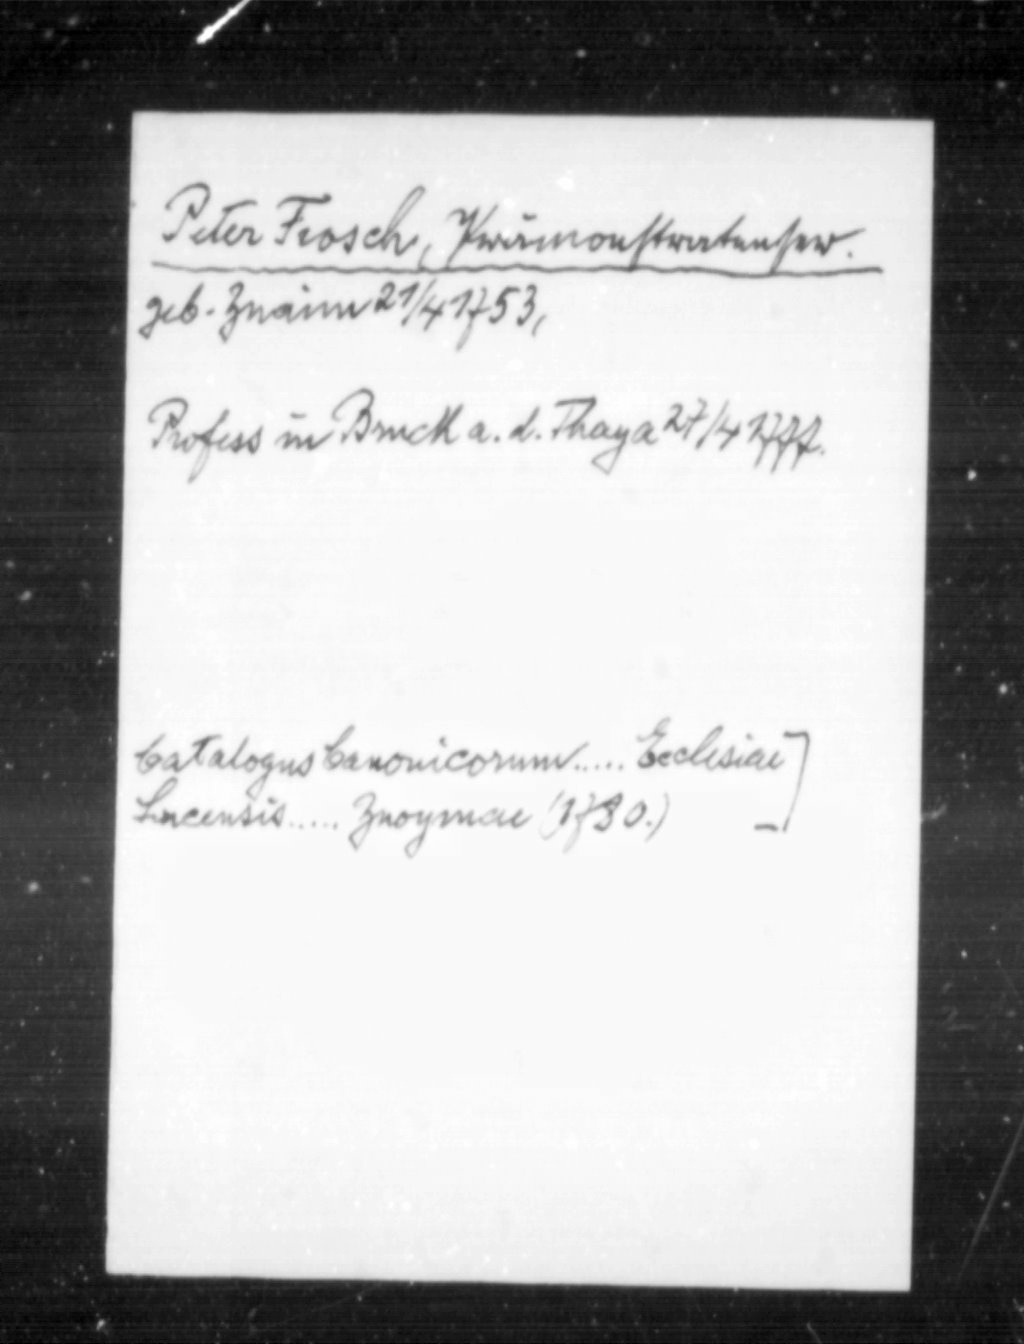 Peter Frosch, Prämonstratenser.
geb. Znaim 21/4 1753,
Profess in Bruck a. d. Thaya 27/4 1777.
Catalogus Canonicorum..... Ecclesiae
Lucensis..... Znoymae (1780.)